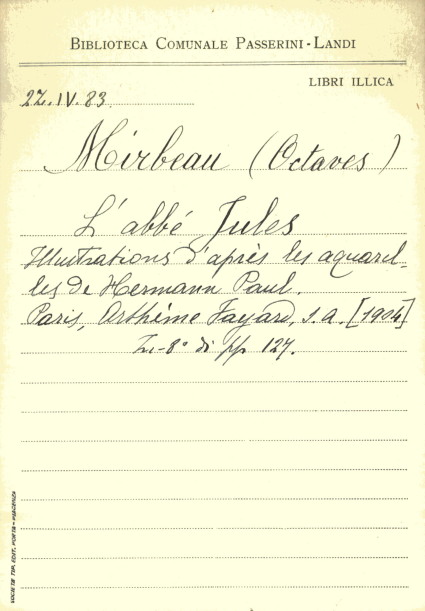 BIBLIOTECA COMUNALE PASSERINI-LANDI
LIBRI ILLICA
2Z.IV.83
Mirbeau (Octaves)
L'abbé Jules
Illustrations d'après les aquarel-
les de Hermann Paul.
Paris, Arthème Fayard, s.a. [1904]
In-8° di pp 127.
SOCIETÀ TIP. EDIT. PORTA - PIACENZA